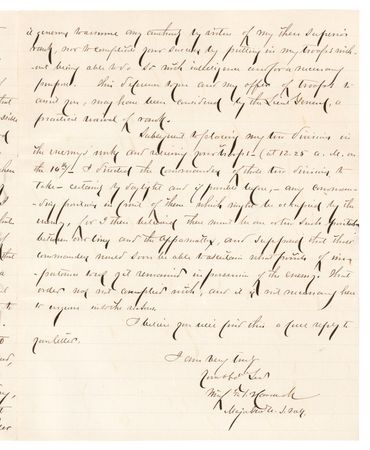 generous to assume any authority by virtue of my then superior
rank, nor to complicate your success by putting in my troops with-
out being able to do so with intelligence and for a necessary
purpose. This deference to you and my offer of troops to
assist you, may have been considered by the Lieut General, a
practical waiver of rank.
Subsequent to placing my two divisions in
the enemy's works and relieving your troops (at 12.25 a.m. on
the 16th) I directed the commanders of those two divisions to
take certainly by daylight and if possible before, any command-
ing positions in front of them which might be occupied by the
enemy, for I then believed there must be one or two such positions
between our line and the Appomattox, and supposed that those
commanders would soon be able to ascertain what points of im-
portance there yet remained in possession of the enemy. That
order was not complied with, and it is not necessary here
to inquire into the causes.
I believe you will find this a full reply to
your letter.
I am very truly
Your obdt Servt
Winf'd S. Hancock
Maj Genl U.S. Vols